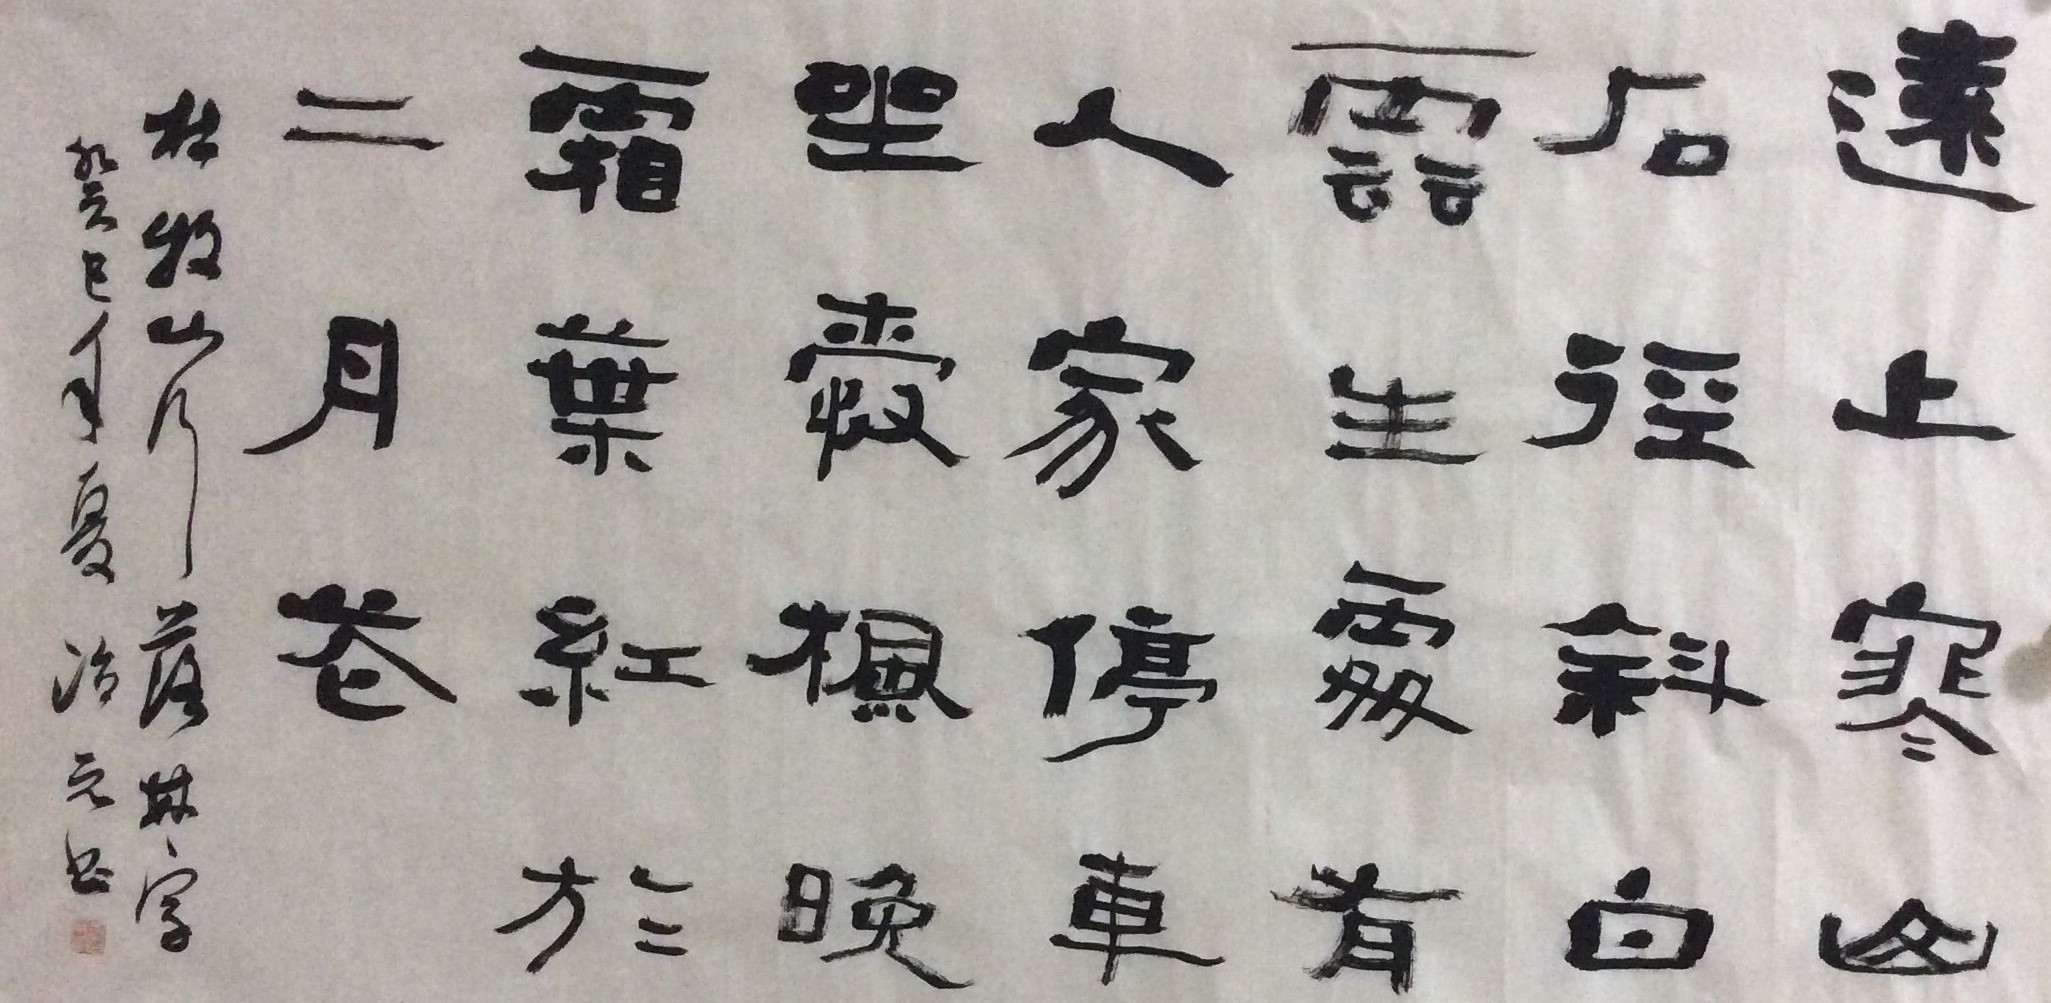 遠上寒山
石徑斜白
雲生處有
人家停車
坐愛楓晚
霜葉紅於
二月花
杜牧山行落林字
癸巳年夏冶元书